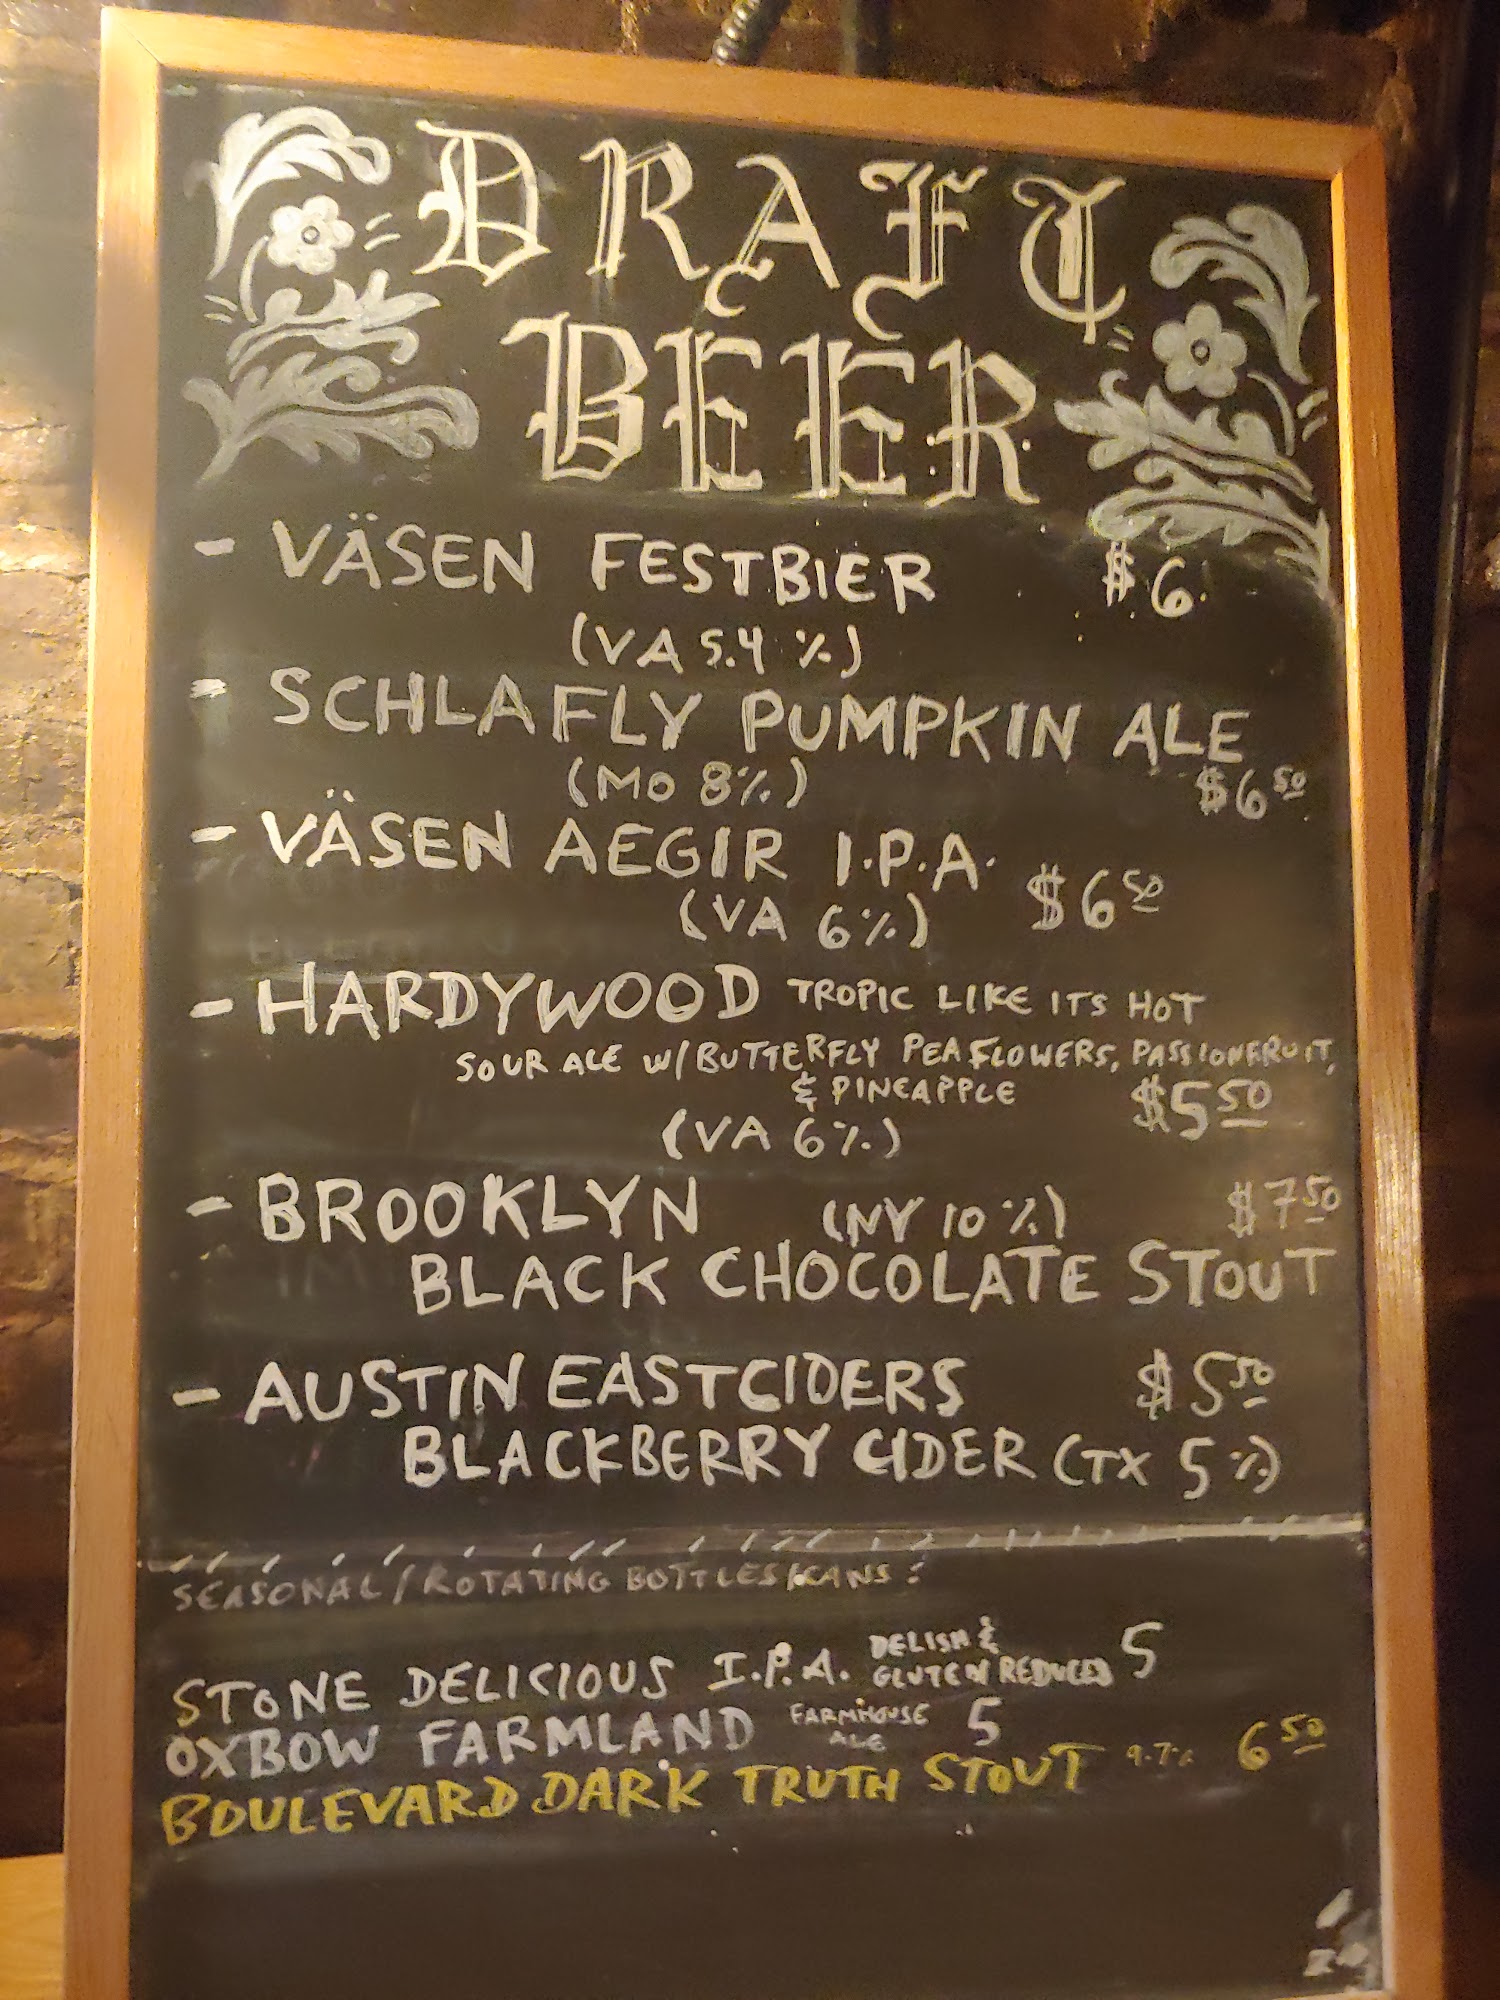 DRAFT
BEER
- VÄSEN FESTBIER $6
(VA 5.4%)
- SCHLAFLY PUMPKIN ALE
(MO 8%) $6.50
- VÄSEN AEGIR I.P.A.
(VA 6%) $6.50
- HARDYWOOD TROPIC LIKE ITS HOT
SOUR ALE W/BUTTERFLY PEA FLOWERS, PASSIONFRUIT,
& PINEAPPLE $5.50
(VA 6%)
- BROOKLYN (NY 10%) $7.50
BLACK CHOCOLATE STOUT
- AUSTIN EASTCIDERS $5.50
BLACKBERRY CIDER (TX 5%)
SEASONAL/ROTATING BOTTLES/CANS:
STONE DELICIOUS I.P.A. DELISH & GLUTEN REDUCED 5
OXBOW FARMLAND FARMHOUSE ALE 5
BOULEVARD DARK TRUTH STOUT 9.7% 6.50